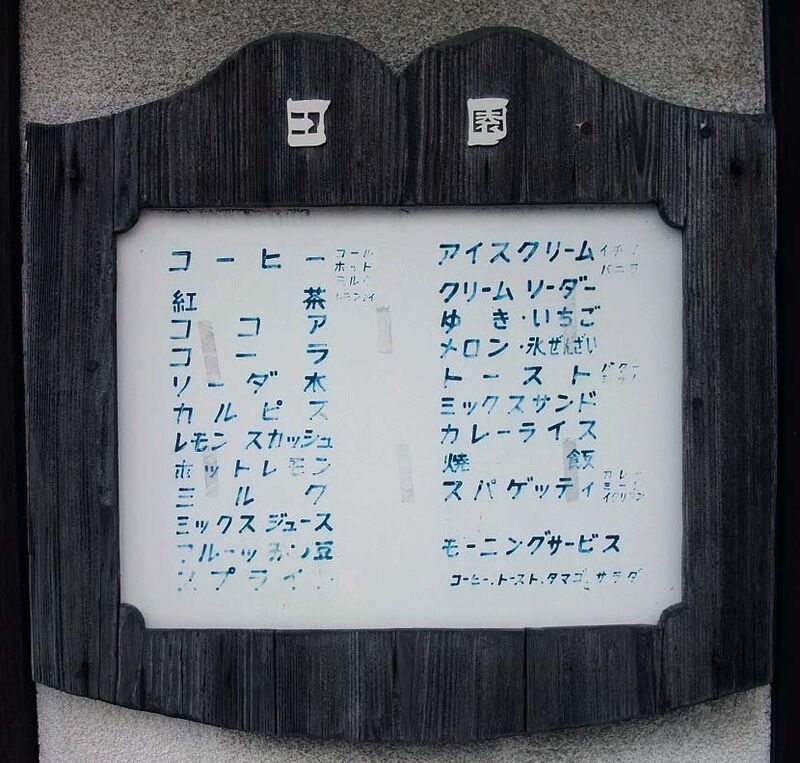 田 園
コーヒー コール
ホット
ミルク
紅茶 レモンティ
ココア
コーラ
ソーダ水
カルピス
レモンスカッシュ
ホットレモン
ミルク
ミックスジュース
フルーツみつ豆
アイスクリーム イチゴ
バニラ
クリームソーダー
ゆき・いちご
メロン・氷ぜんざい
トースト バター
ジャム
ミックスサンド
カレーライス
焼飯
スパゲッティ カレー
ミート
イタリアン
モーニングサービス
コーヒー、トースト、タマゴ、サラダ